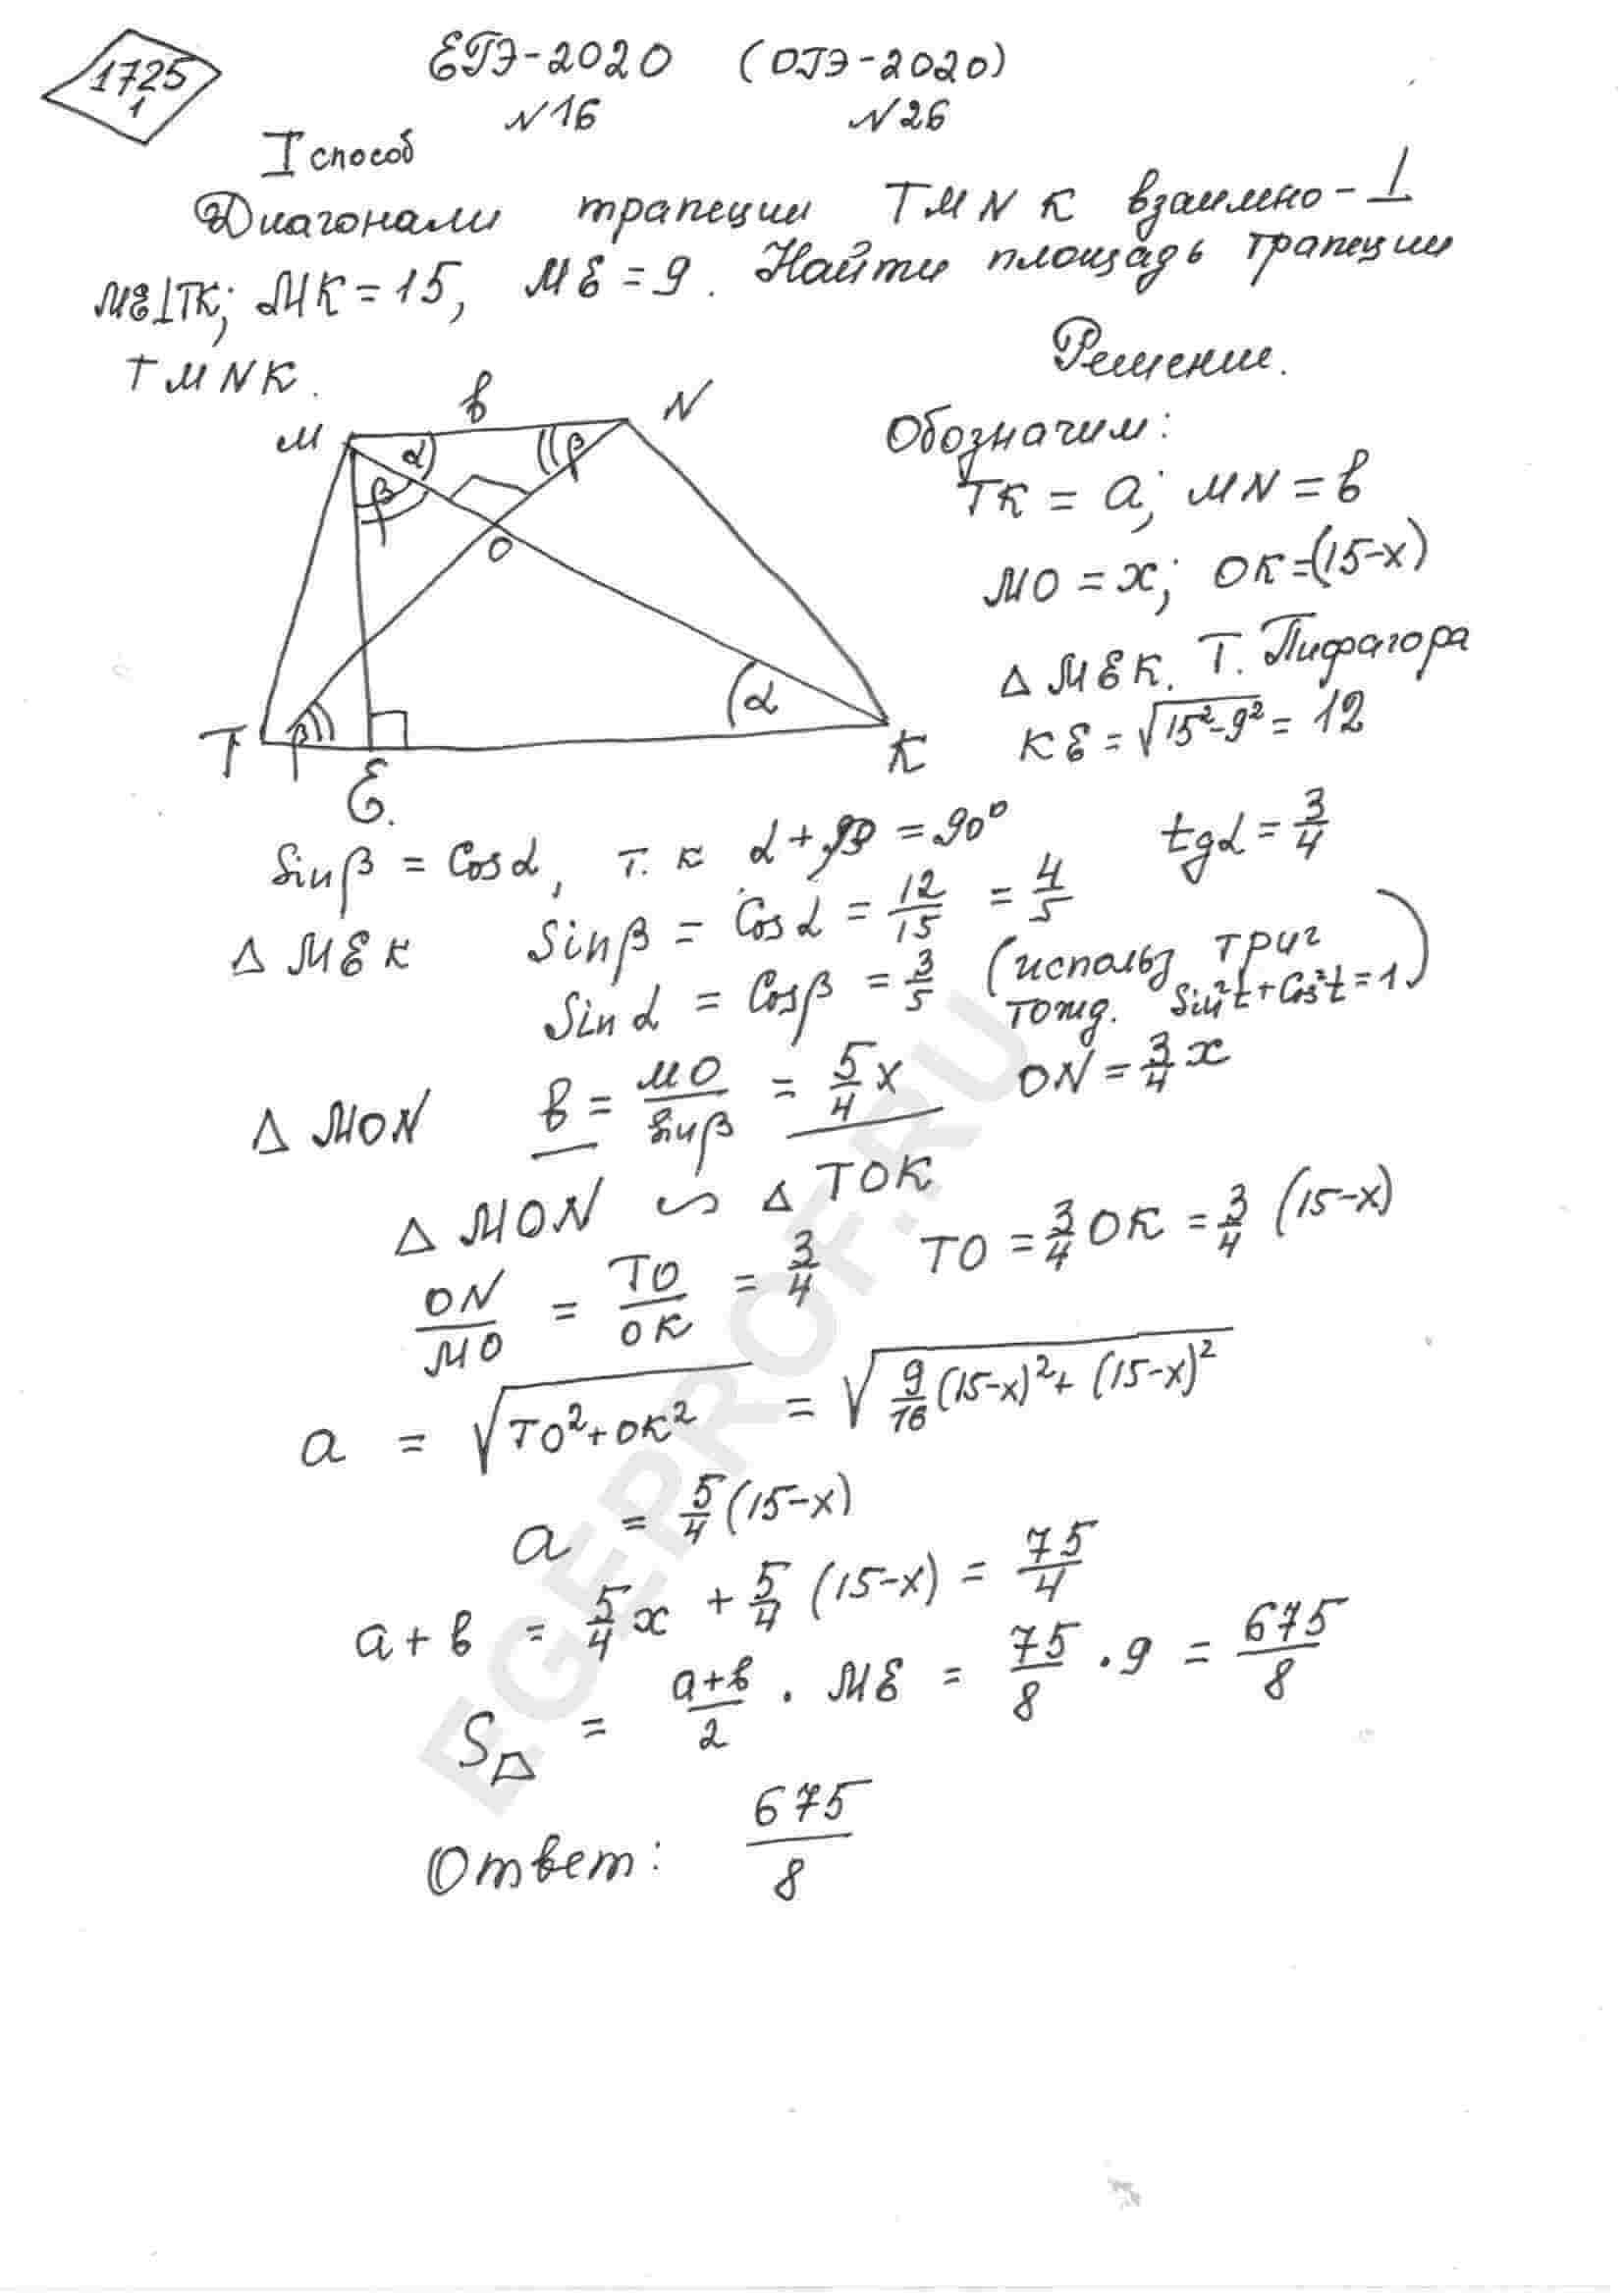 1725
1
ЕГЭ-2020 (ОГЭ-2020)
N16 N26
I способ
Диагонали трапеции TMNK взаимно-⊥
ME⊥TK; MK=15, ME=9. Найти площадь трапеции
TMNK.
Решение.
M в N
α β β
O
β α
T E. K
Обозначим:
TK = a; MN = в
MO = x; OK=(15-x)
△ MEK. Т. Пифагора
KE = √(15²-9²) = 12
Sinβ = Cosα, т.к α+β = 90° tgα = 3/4
△ MEK Sinβ = Cosα = 12/15 = 4/5
Sinα = Cosβ = 3/5 (использ триг
тожд. Sin²t+Cos²t=1)
△ MON в = MO/Sinβ = 5/4 x ON = 3/4 x
△ MON ∽ △ TOK
ON/MO = TO/OK = 3/4 TO = 3/4 OK = 3/4 (15-x)
a = √(TO²+OK²) = √(9/16 (15-x)²+(15-x)²)
a = 5/4 (15-x)
a+в = 5/4 x + 5/4 (15-x) = 75/4
S = (a+в)/2 · ME = 75/8 · 9 = 675/8
Ответ: 675/8
EGEPROF.RU